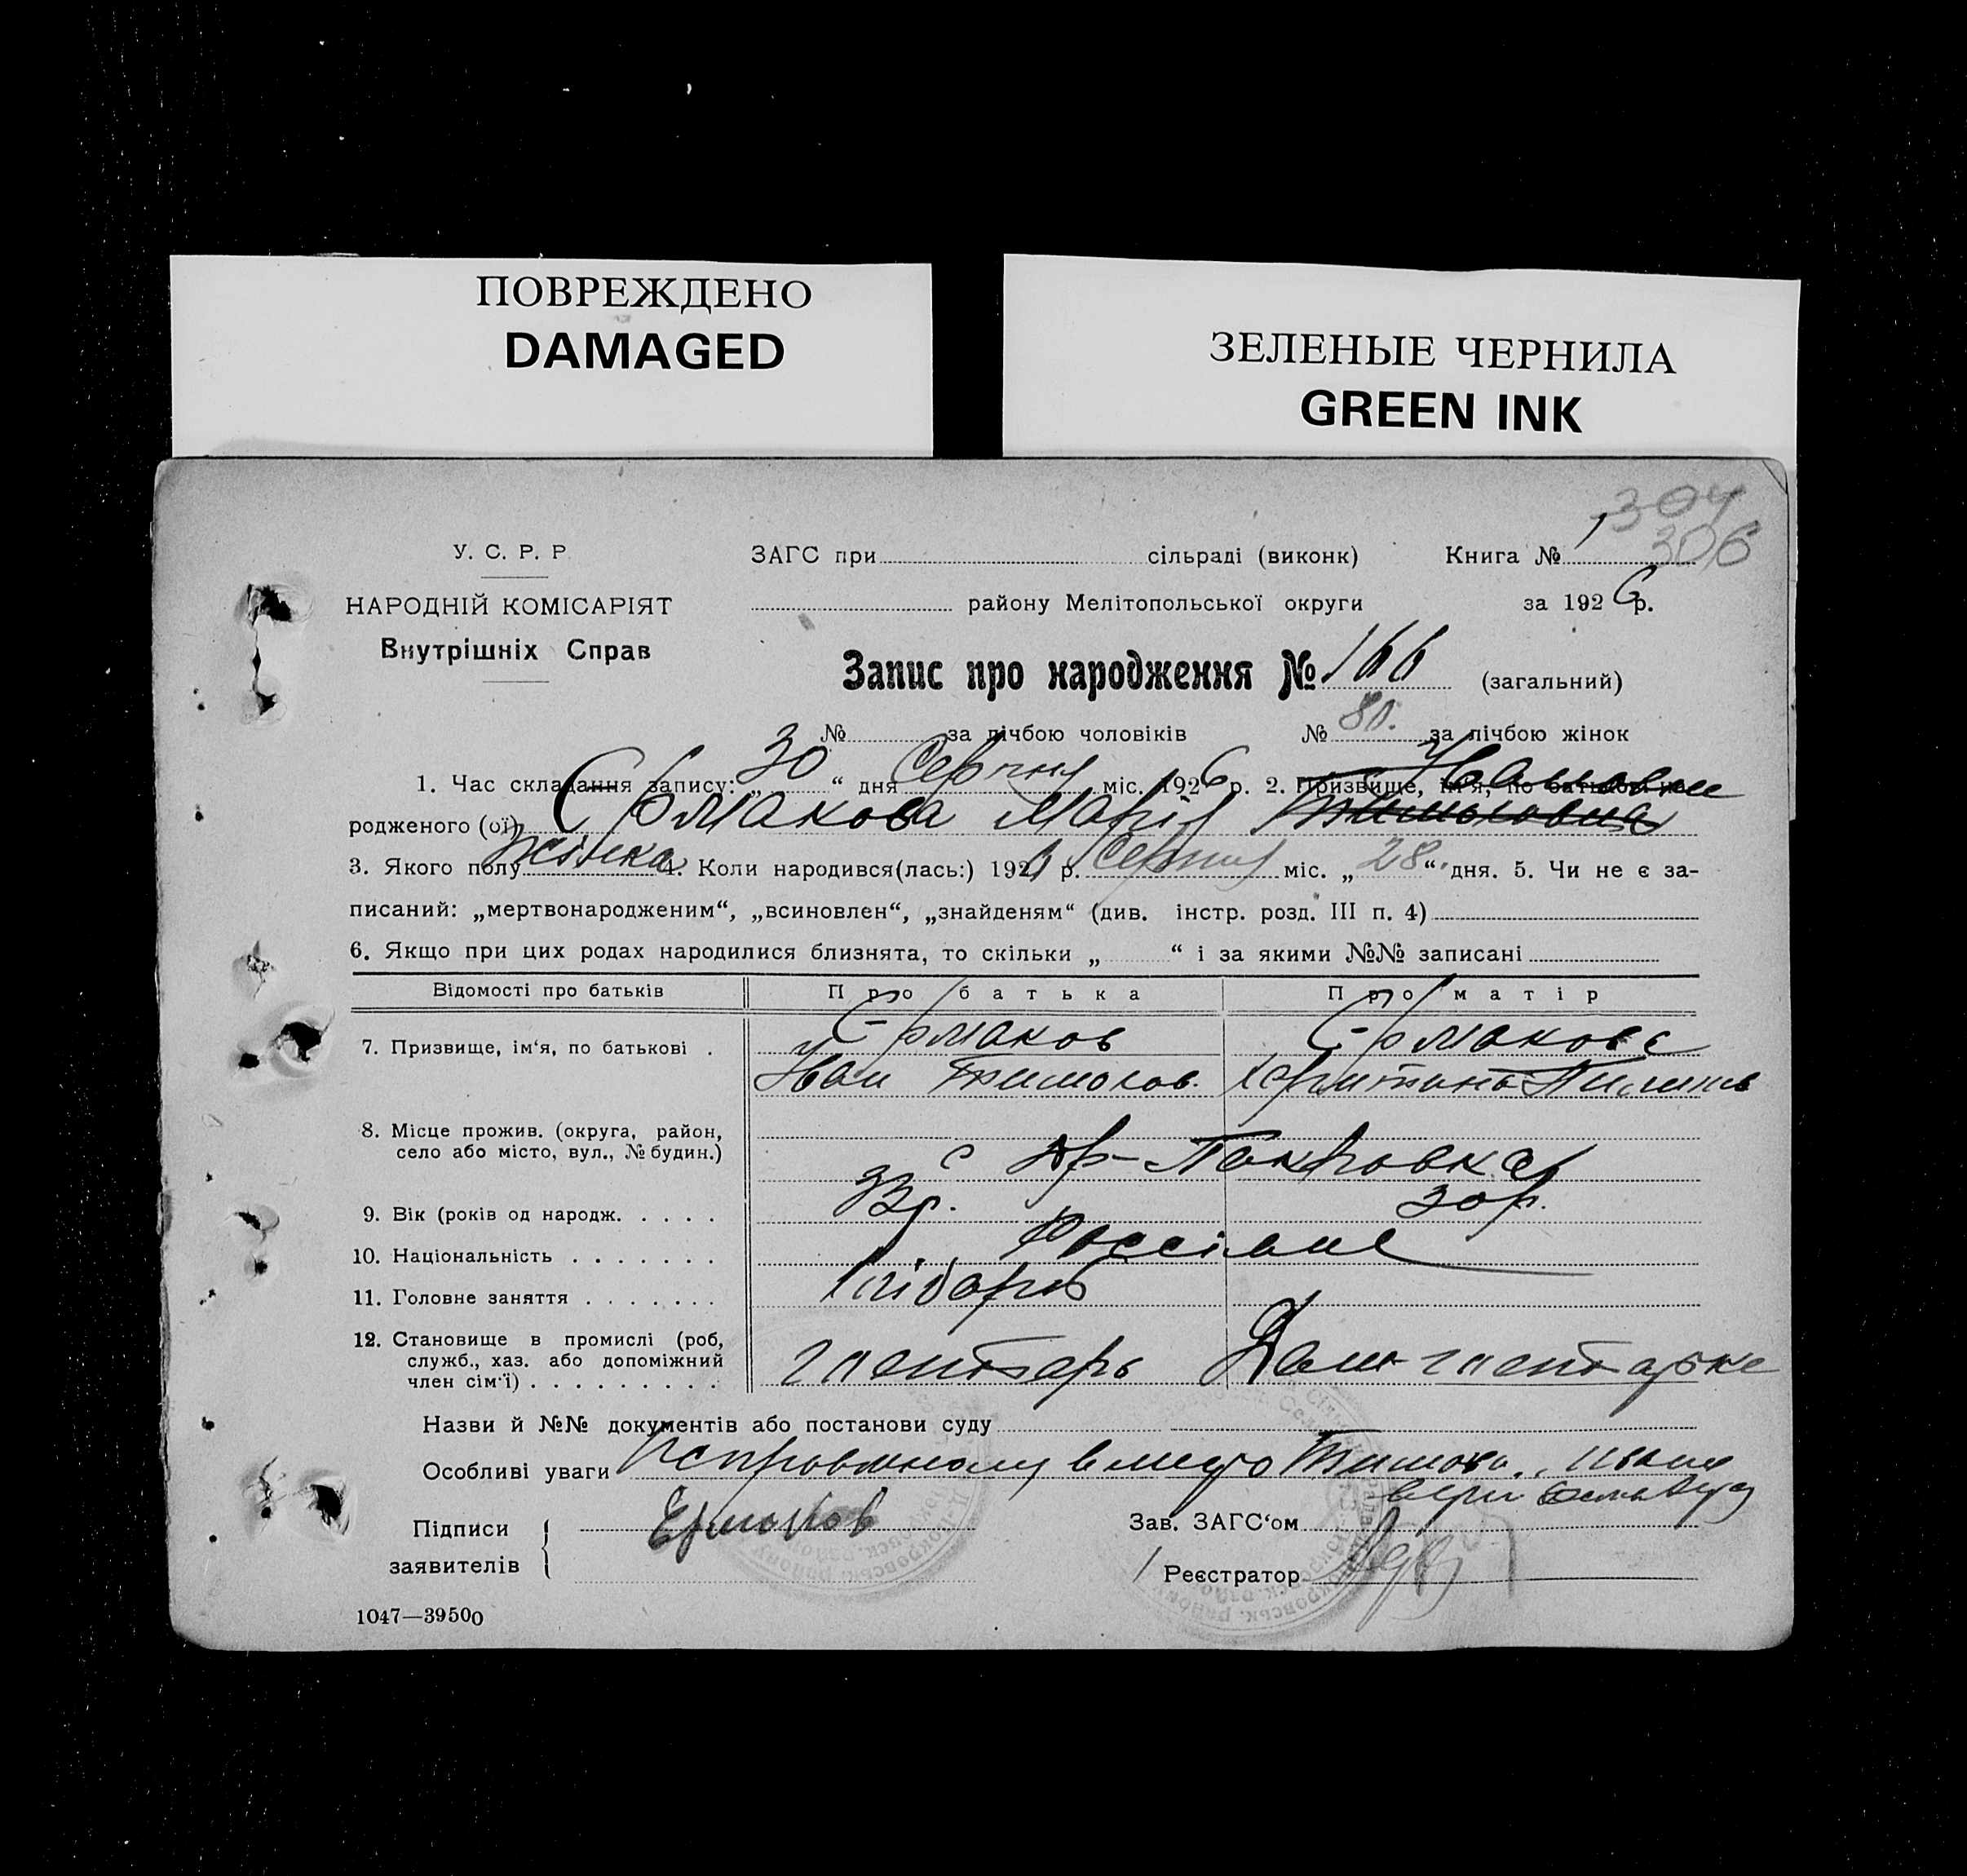 ПОВРЕЖДЕНО
DAMAGED
ЗЕЛЕНЫЕ ЧЕРНИЛА
GREEN INK
304
306
У. С. Р. Р.
НАРОДНІЙ КОМІСАРІЯТ
Внутрішніх Справ
ЗАГС при сільраді (виконк) Книга № 1
району Мелітопольської округи за 1926 р.
Запис про народження № 166 (загальний)
№ за лічбою чоловіків № 80. за лічбою жінок
1. Час складання запису: „ 30 “ дня Серпня міс. 1926 р. 2. Призвище, ім'я, по батькові на-
Ивановне
родженого (ої) Єрмакова Марія
3. Якого полу жінка 4. Коли народився(лась:) 1926 р. Серпня міс. „ 28 “ дня. 5. Чи не є за-
писаний: „мертвонародженим“, „всиновлен“, „знайденям“ (див. інстр. розд. III п. 4)
6. Якщо при цих родах народилися близнята, то скільки „ “ і за якими №№ записані
Відомості про батьків Про батька Про матір
7. Призвище, ім'я, по батькові . Єрмаков Єрмакова
Иван Тимохов.
8. Місце прожив. (округа, район,
село або місто, вул., № будин.) с Др-Покровка
9. Вік (років од народж. . . . . 33р. 30р.
10. Національність . . . . . . . Россіяне
11. Головне заняття . . . . . . . Хлібороб
12. Становище в промислі (роб,
служб., хаз. або допоміжний
член сім'ї) . . . . . . . . .
Назви й №№ документів або постанови суду
Особливі уваги Исправленному
Підписи
заявителів
Ермаков
Зав. ЗАГС'ом
Реєстратор
1047—39500